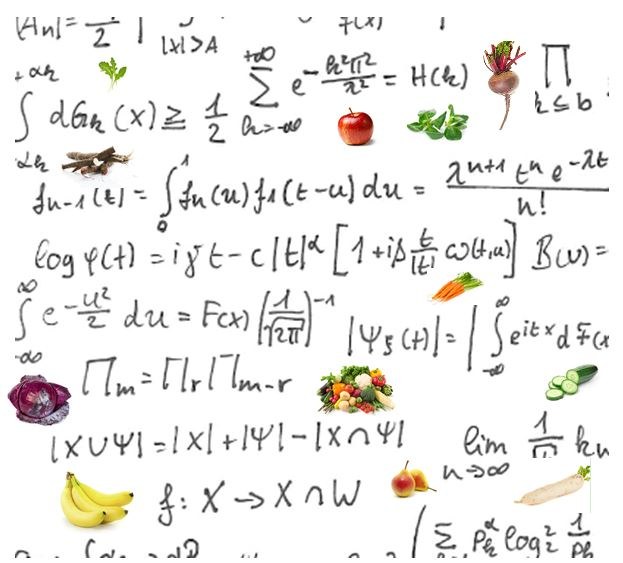 |An|= 2 |x|>A F(x)
∑ +∞ k=-∞ e^{-k²π²/λ²} = H(k) ∏ k≤b
∫ +αk -αk dGk(x) ≥ 1/2
fn-1(t) = ∫₀¹ fn(u) f1(t-u) du = λ^{n+1} t^n e^{-λt} / n!
log φ(t) = iγt - c|t|^α [1 + iβ t/|t| ω(t,α)] B(v) =
∫ ∞ -∞ e^{-u²/2} du = F(x) (1/√2π)^{-1} |Ψξ(t)| = | ∫ ∞ -∞ e^{itx} dF(x
∏m = ∏r ∏m-r
|X∪Ψ| = |X| + |Ψ| - |X∩Ψ| lim n→∞ 1 kn
f: X → X∩W
∑ Pk^α log₂² 1/Pk